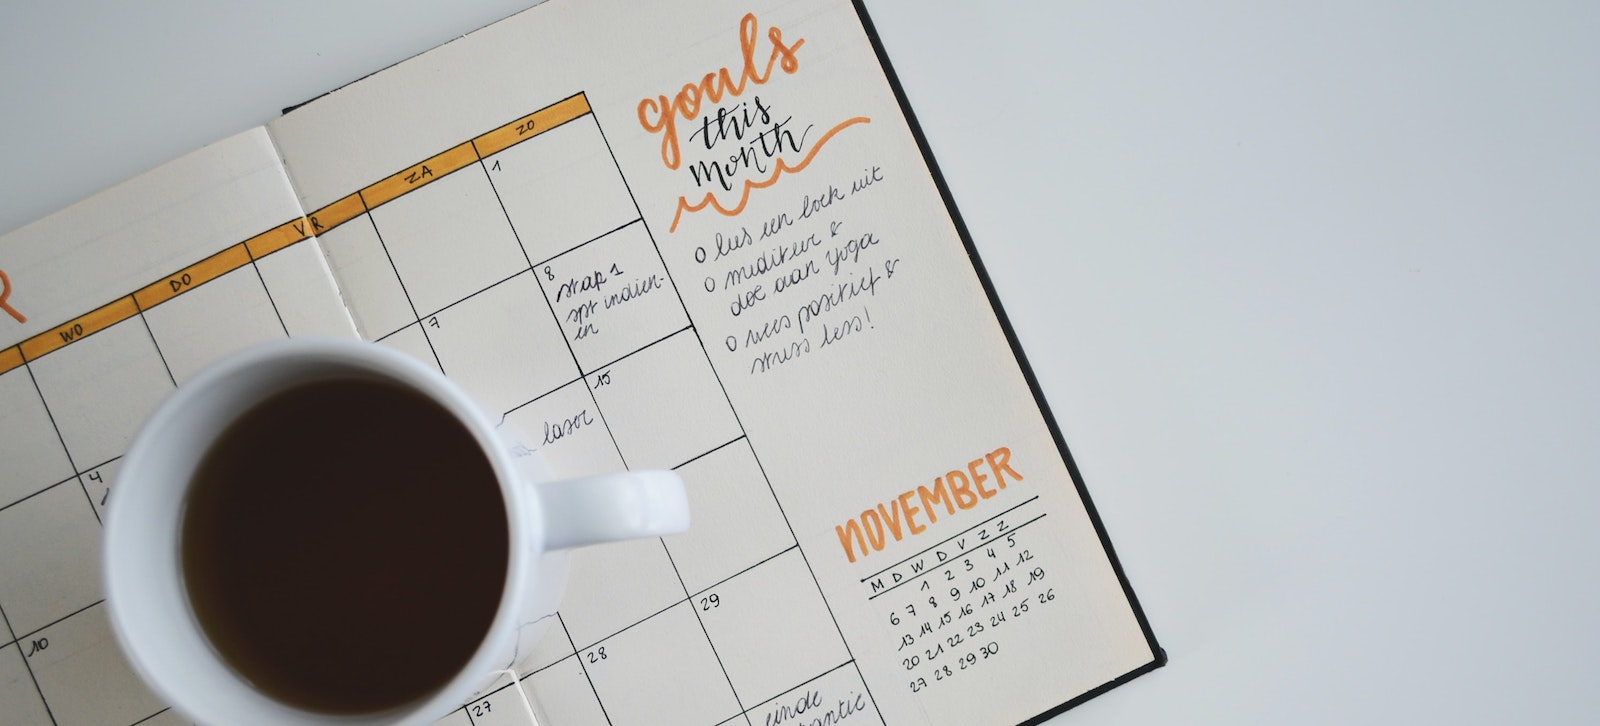 R
WO
DO
VR
ZA
ZO
1
7
8
stap 1
spr indien-
en
laser
15
4
10
27
28
29
einde
goals
this
month
o lees een boek uit
o mediteer &
doe aan yoga
o wees positief &
stress less!
NOVEMBER
M D W D V Z Z
1 2 3 4 5
6 7 8 9 10 11 12
13 14 15 16 17 18 19
20 21 22 23 24 25 26
27 28 29 30